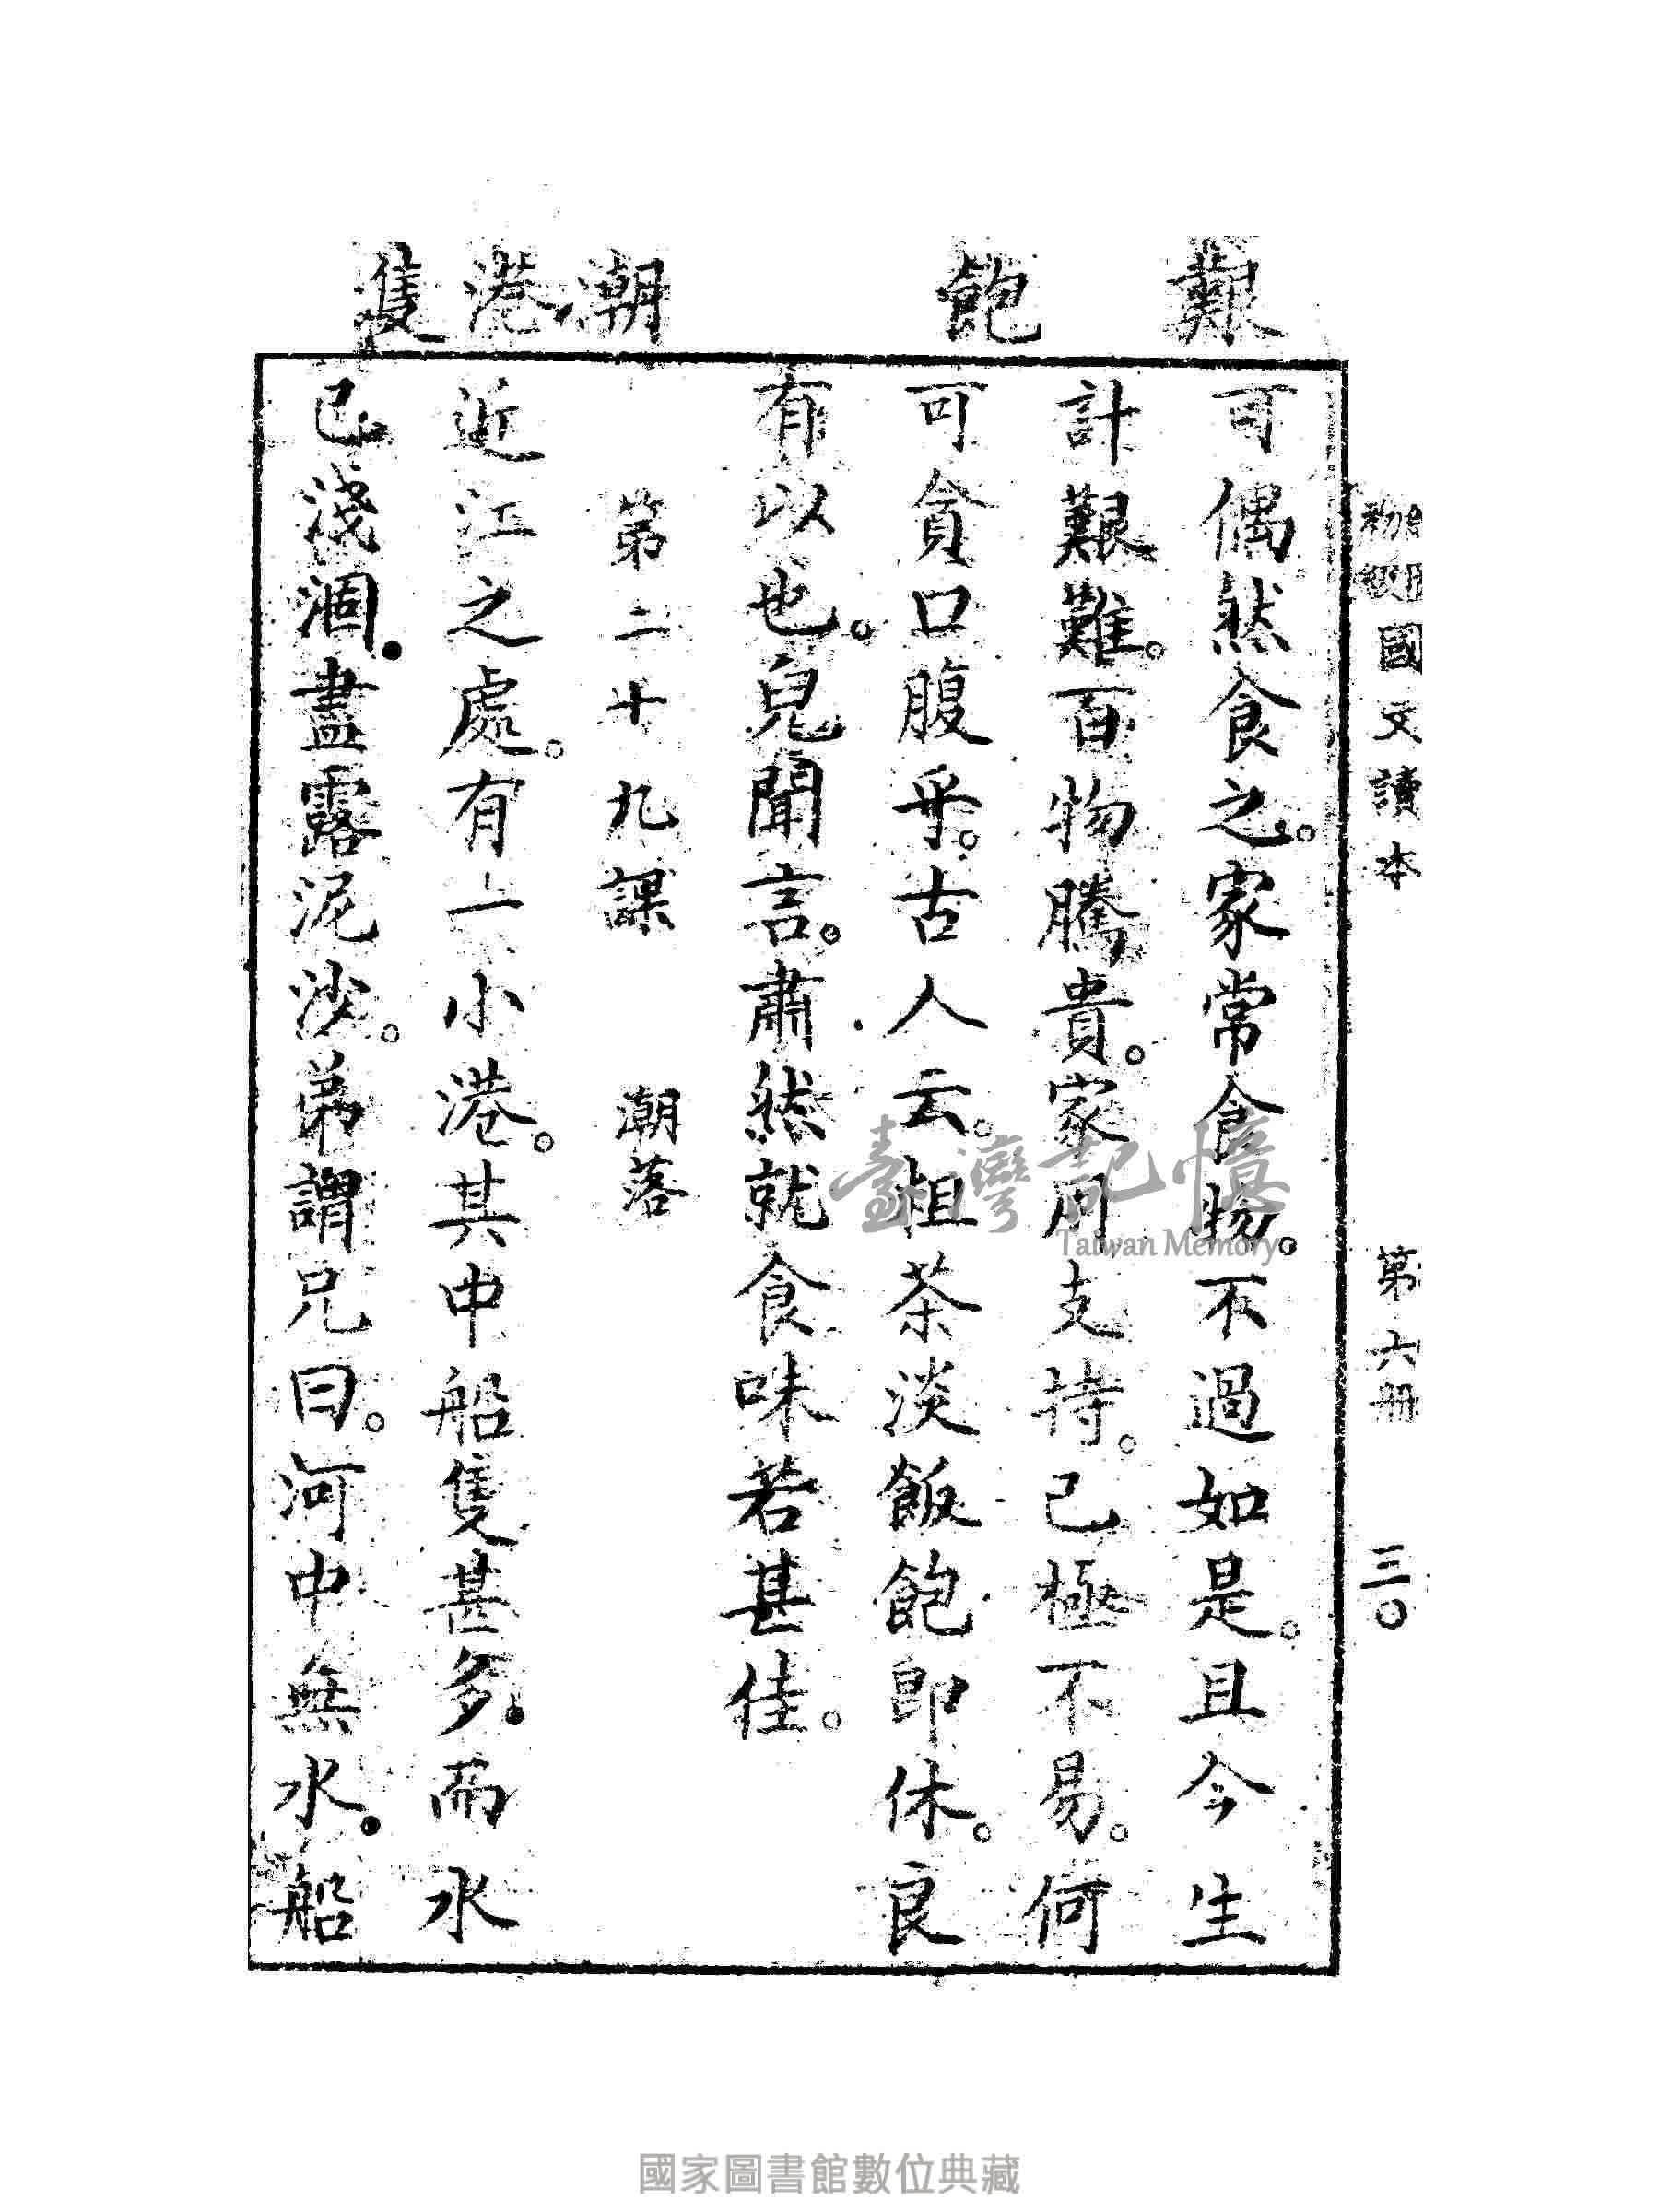 初級國文讀本 第六冊 三〇
艱
飽
潮
港
隻
可偶然食之。家常食物。不過如是。且今生
計艱難。百物騰貴。家用支持。已極不易。何
可貪口腹乎。古人云。粗茶淡飯飽即休。良
有以也。兒聞言。肅然就食味若甚佳。
第二十九課 潮落
近江之處。有一小港。其中船隻甚多。而水
已淺涸。盡露泥沙。弟謂兄曰。河中無水。船
臺灣記憶
Taiwan Memory
國家圖書館數位典藏